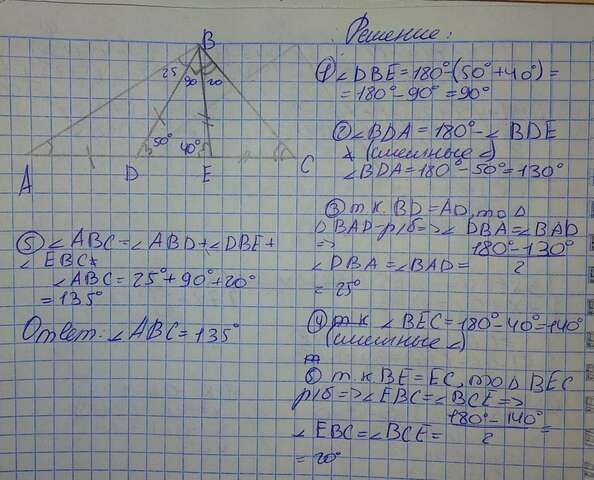 B
25 90 20
50° 40°
A D E C
Решение:
① ∠DBE = 180° - (50° + 40°) =
= 180° - 90° = 90°
② ∠BDA = 180° - ∠BDE
(смежные ∠)
∠BDA = 180° - 50° = 130°
③ т.к. BD = AD, то Δ
DBAD - р/б => ∠DBA = ∠BAD
=> 180° - 130°
∠DBA = ∠BAD = 2
= 25°
④ т.к ∠BEC = 180° - 40° = 140°
(смежные ∠)
⑤ т.к BE = EC, то Δ BEC
р/б => ∠EBC = ∠BCE =>
180° - 140°
∠EBC = ∠BCE = 2 =
= 20°
⑤ ∠ABC = ∠ABD + ∠DBE +
∠EBC
∠ABC = 25° + 90° + 20°
= 135°
Ответ: ∠ABC = 135°